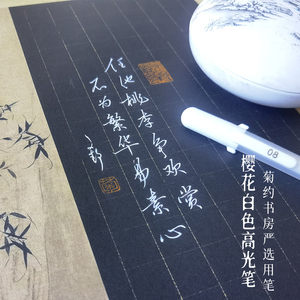 任他桃李争欢赏
不为繁华易素心
08
菊约书房严选用笔
樱花白色高光笔